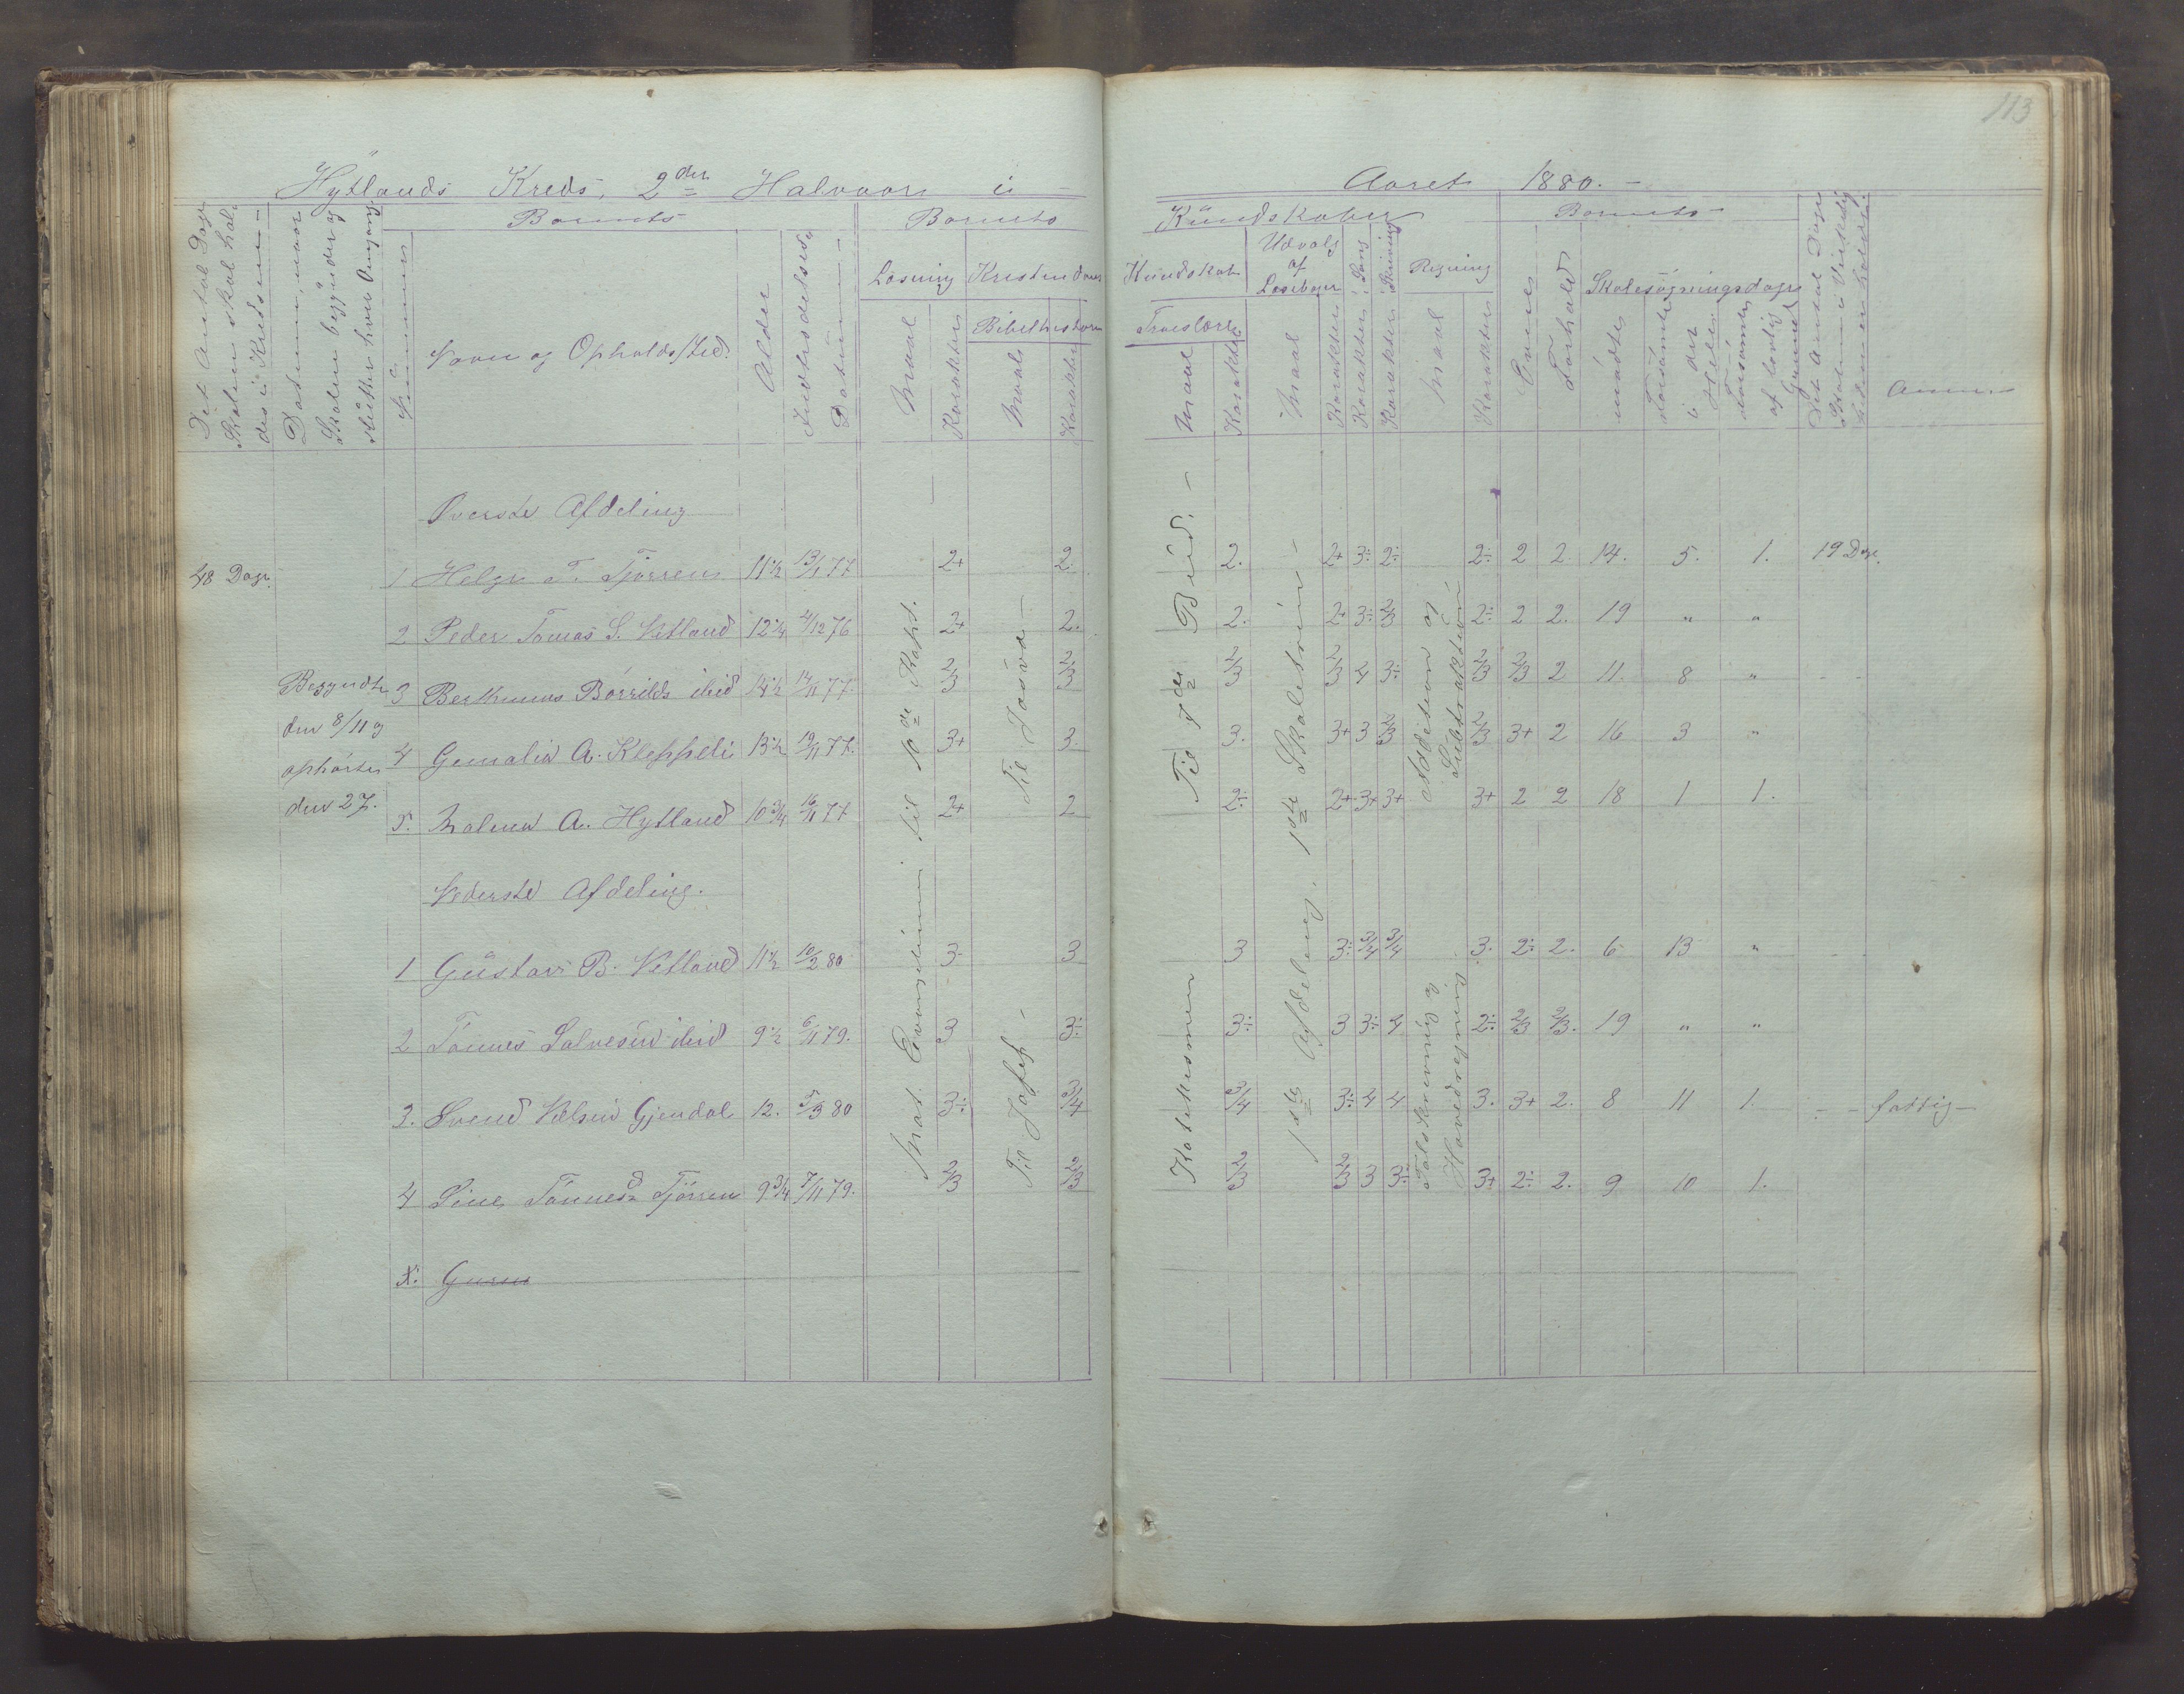 113
Hytlands Kreds, 2den Halvaar i Aaret 1880.
Det Antal Dage Skolen skal holdes i Kredsen
Datum, naar Skolen begynder og slutter hver Omgang
Nummer
Barnets
Navn og Opholdssted.
Alder
Indtrædelses Datum
Barnets
Læsning
Maal
Karakter
Kristendoms
Bibelhistorie
Maal
Karakter
Kundskaber
Kundskab
Troeslære
Maal
Karakter
Udvalg af Læsebogen
Maal
Karakter
Sang
Karakter
Skrivning
Karakter
Regning
Maal
Karakter
Barnets
Evner
Forhold
Skolesøgningsdage
mødte
forsømte i det Hele
forsømte af lovlig Grund
Det Antal Dage Skolen i Virkelighden er holdt
Anm
Øverste Afdeling
48 Dage. 1 Helge T. Tjørren 11½ 13/1 77 2+ 2. 2. 2+ 3÷ 2÷ 2÷ 2 2. 14. 5. 1. 19 Dage.
2 Peder Tomas S. Vetland 12¼ 4/12 76 2+ 2. 2. 2+ 3÷ 2/3 2÷ 2 2. 19 " "
3 Berthinius Børrilds ibid 14½ 14/11 77. 2/3 2/3 2/3 2/3 4 3÷ 2/3 2/3 2 11. 8 "
4 A. Kleppeli 13½ 19/11 77. 3+ 3. 3. 3+ 3 2/3 2/3 3+ 2 16 3 "
5. A. Hytland 10¾ 16/11 77 2+ 2 2÷ 2+ 3+ 3+ 3+ 2 2 18 1 1.
Begyndte
den 8/11 og
ophørte
den 27.
Til 10de Kapt.
Til Josva
Til 7de Bud.
1ste Skoletrin
Addition og Subtraktion
Nederste Afdeling.
1 Gustav B. Vetland 11½ 10/2 80 3 3 3 3÷ 3/4 3/4 3. 2÷ 2. 6 13 "
2 Tønnes Salvesen ibid 9½ 6/11 79. 3 3÷ 3÷ 3 3÷ 4 2÷ 2/3 2/3. 19 " "
3. Svend Nelsen Gjendal 12. 5/3 80 3÷ 3/4 3/4 3÷ 4 4 3. 3+ 2. 8 11 1. fattig
4 Sine Tønnesd Tjørren 9¾ 7/11 79. 2/3 2/3 2/3 2/3 3 3÷ 3+ 2÷ 2. 9 10 1.
Mat. Evangelium
Til Josef
Katekismen
1ste Afdeling
Talskrivning og Hovedregning